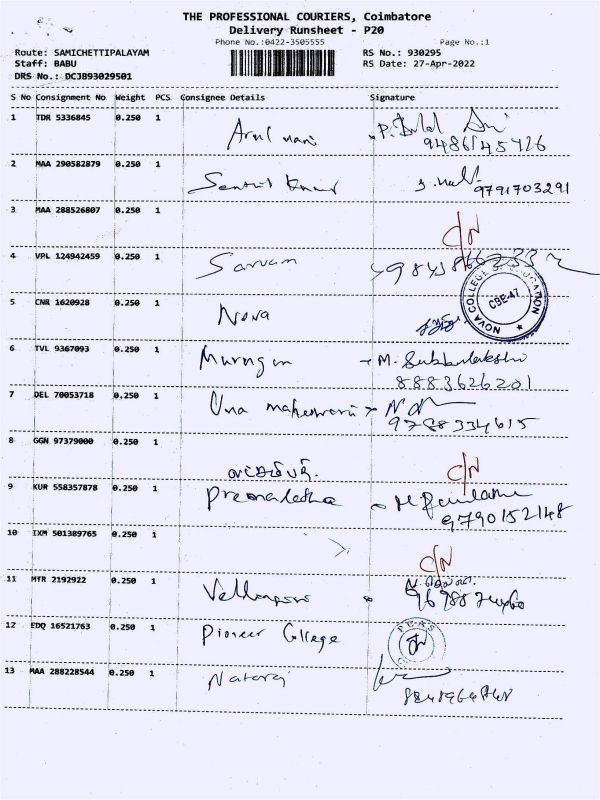 THE PROFESSIONAL COURIERS, Coimbatore
Delivery Runsheet - P20
Phone No.:0422-3505555 Page No.:1
Route: SAMICHETTIPALAYAM RS No.: 930295
Staff: BABU RS Date: 27-Apr-2022
DRS No.: DCJB93029501
S No Consignment No Weight PCS Consignee Details Signature
1 TDR 5336845 0.250 1
9486145726
2 MAA 290582879 0.250 1 Senthil Kumar
9791703291
3 MAA 288526807 0.250 1
C/N
4 VPL 124942459 0.250 1 Sarvam
5 CNR 1620928 0.250 1 Nova
NOVA COLLEGE OF EDUCATION
CBE-47
6 TVL 9367093 0.250 1 Murugan M. Subbulakshmi
8883626201
7 DEL 70053718 0.250 1 Uma maheswari
9788334615
8 GGN 97379000 0.250 1
C/N
9 KUR 558357878 0.250 1 Premalatha
9790152148
10 IXM 501389765 0.250 1
C/N
11 MYR 2192922 0.250 1
12 EDQ 16521763 0.250 1 Pioneer College
13 MAA 288228544 0.250 1 Nataraj